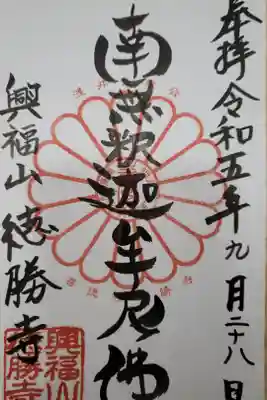 奉拝 令和五年九月二十八日
南無釈迦牟尼佛
興福山 徳勝寺
興福山
徳勝寺